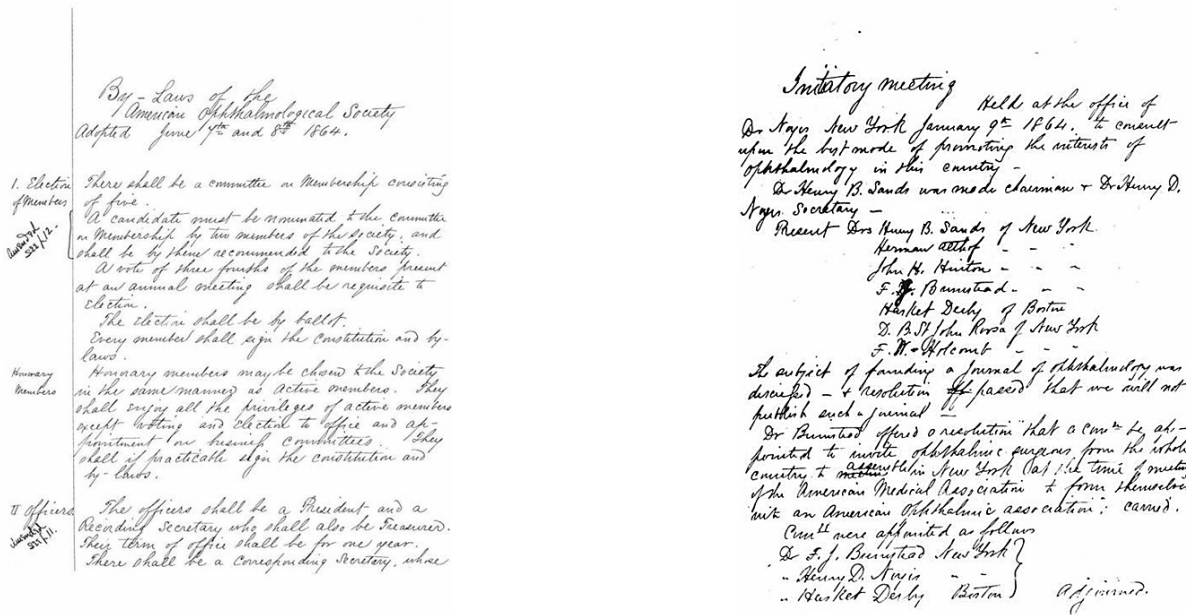 By-Laws of the
American Ophthalmological Society
Adopted June 7th and 8th 1864.
I. Election
of Members
There shall be a committee on Membership consisting
of five.
A candidate must be nominated to the committee
on Membership by two members of the society, and
shall be by them recommended to the Society.
A vote of three fourths of the members present
at an annual meeting shall be requisite to
Election.
The Election shall be by ballot.
Every member shall sign the constitution and by-
laws.
Honorary
Members
Honorary members may be chosen to the Society
in the same manner as active members. They
shall enjoy all the privileges of active members
except voting and Election to office and ap-
pointment on business committees. They
shall if practicable sign the constitution and
by-laws.
II Officers
The officers shall be a President and a
Recording Secretary who shall also be Treasurer.
Their term of office shall be for one year.
There shall be a corresponding Secretary, whose
Initiatory meeting
Held at the office of
Dr Noyes New York January 9th 1864. to consult
upon the best mode of promoting the interests of
ophthalmology in this country -
Dr Henry B. Sands was made chairman + Dr Henry D.
Noyes Secretary -
Present Drs Henry B. Sands of New York
Herman Althof - - -
John H. Hinton - - -
F. J. Bumstead - - -
Hasket Derby of Boston
D. B St John Roosa of New York
F. W. Holcomb - - -
The subject of founding a Journal of ophthalmology was
discussed - + resolution passed that we will not
publish such a journal -
Dr Bumstead offered a resolution that a comtt be ap-
pointed to invite ophthalmic surgeons from the whole
country to assemble in New York (at the time of meeting
of the American Medical Association to form themselves
into an American Ophthalmic association; carried.
Comtt were appointed as follows
Dr F. J. Bumstead New York
" Henry D. Noyes " "
" Hasket Derby Boston
Adjourned.